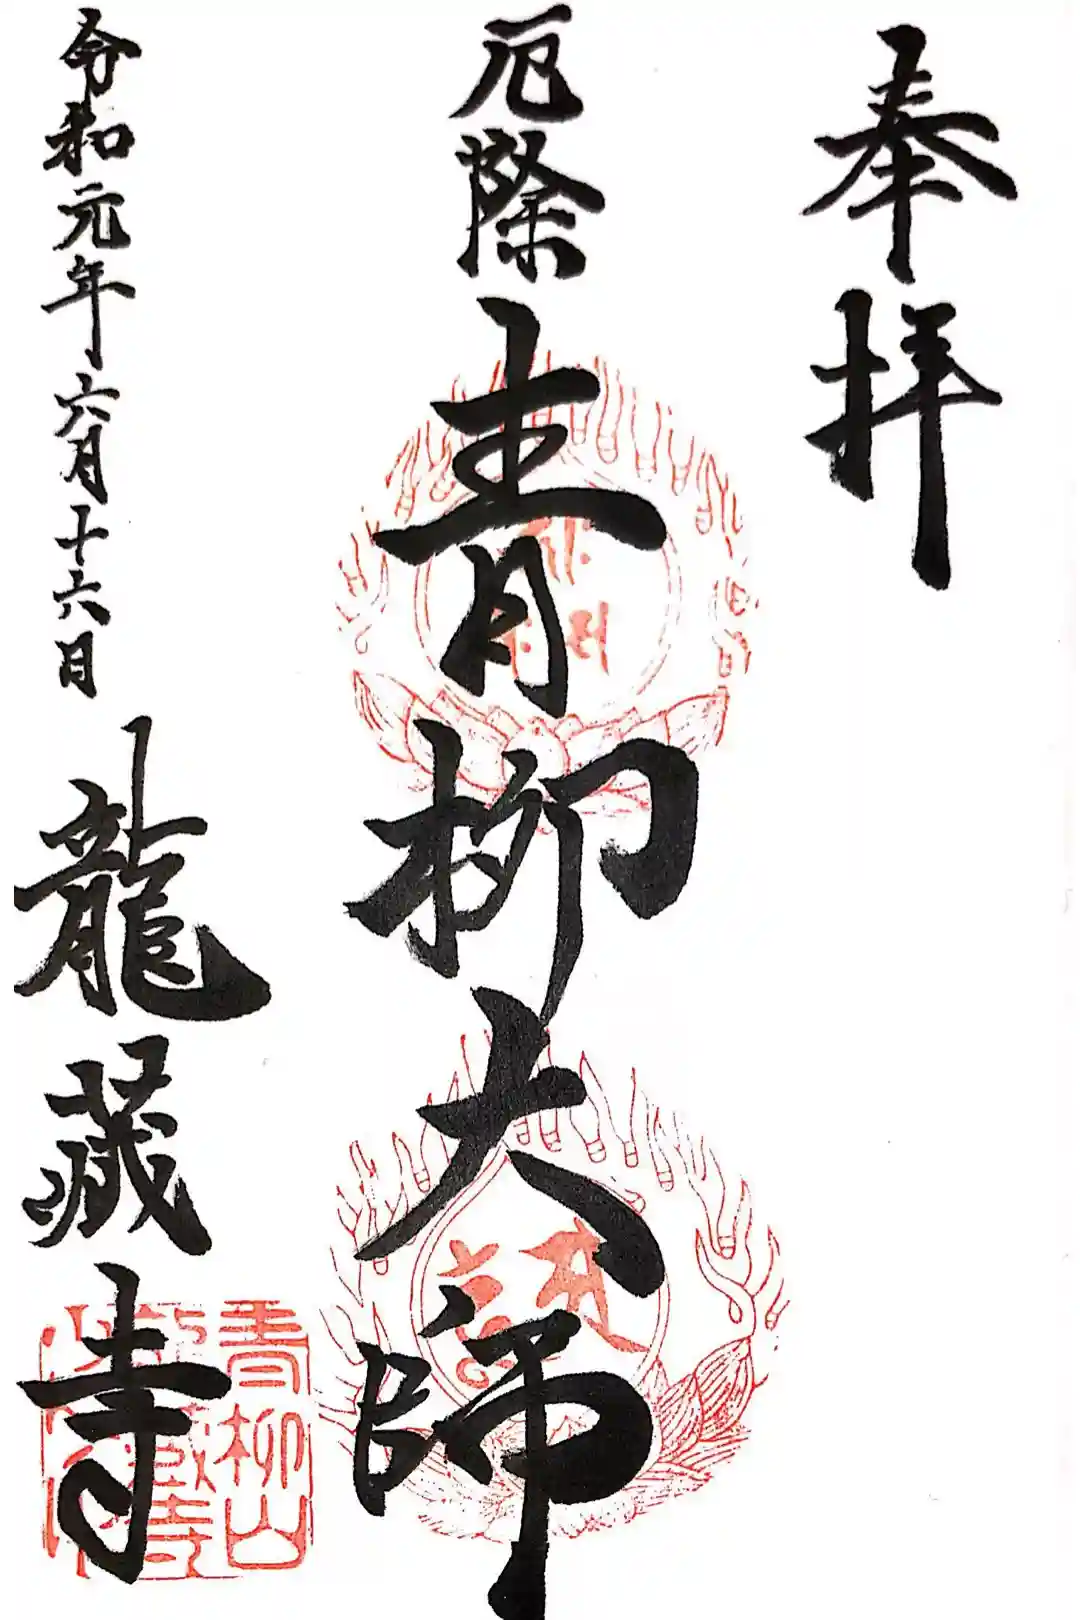 奉拝
厄除
青柳大師
令和元年六月十六日
龍蔵寺
青柳山